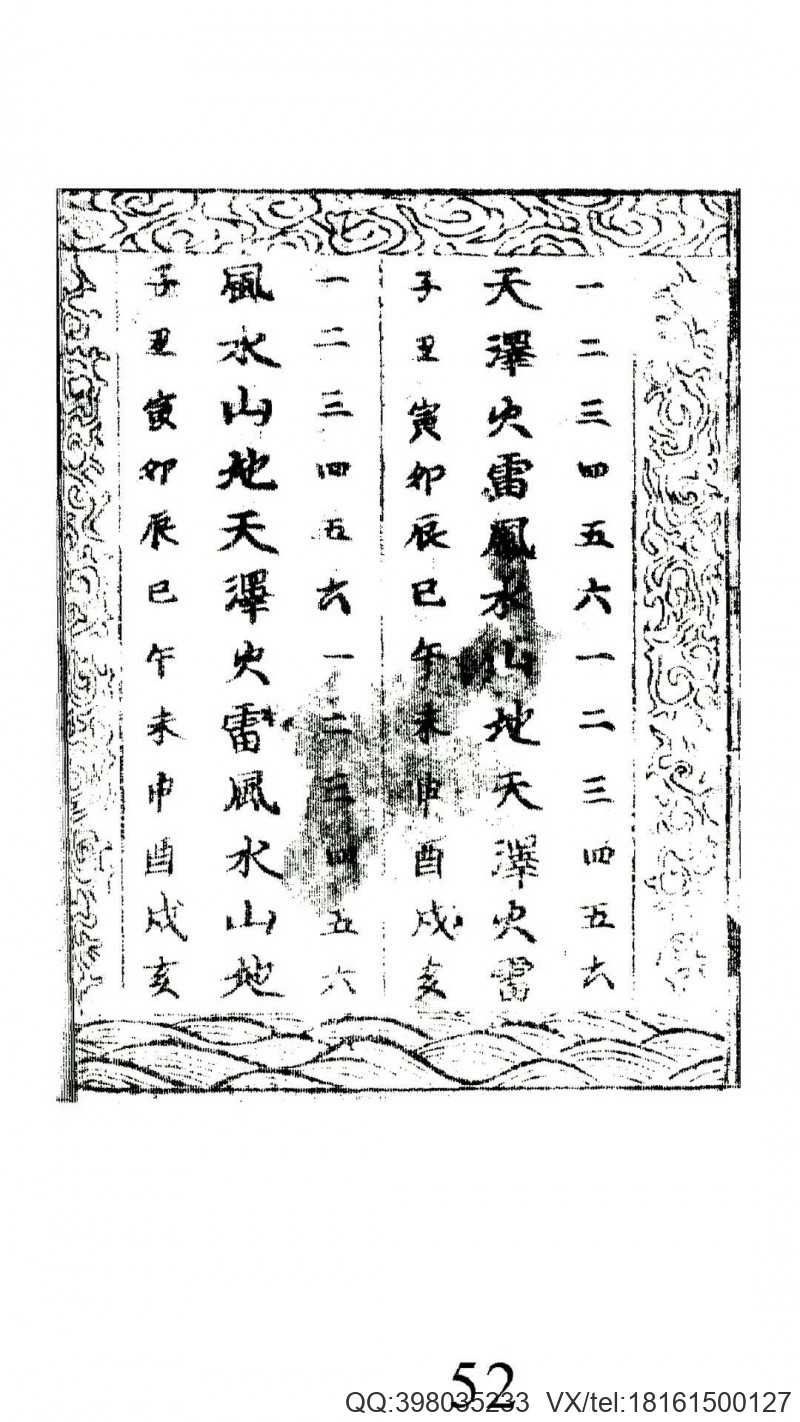 一二三四五六一二三四五六
天澤火雷風水山地天澤火雷
子丑寅卯辰巳午未申酉戌亥
一二三四五六一二三四五六
風水山地天澤火雷風水山地
子丑寅卯辰巳午未申酉戌亥
52
QQ:398035233 VX/tel:18161500127